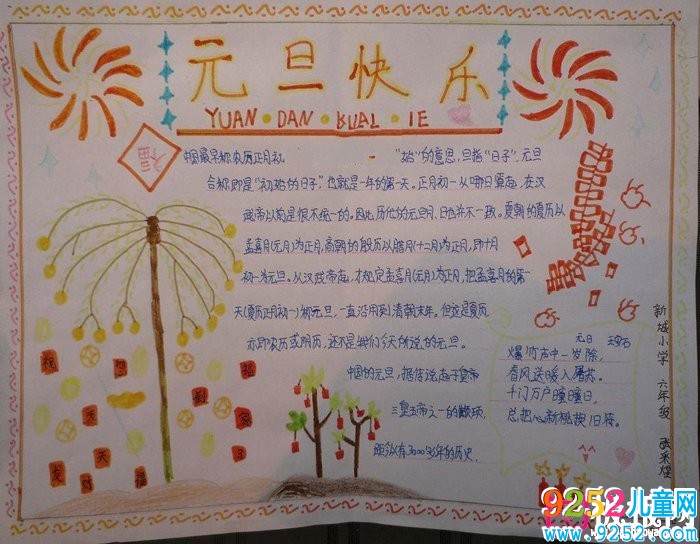 元旦快乐
YUAN·DAN·KUAL·IE
福
中国最早称农历正月初
"始"的意思,旦指"日子",元旦
合称即是"初始的日子",也就是一年的第一天。正月初一从哪日算起,在汉
武帝以前是很不统一的。因此,历代的元旦月、日也并不一致。夏朝的夏历以
孟喜月(元月)为正月,商朝的殷历以腊月(十二月)为正月,即十月
初一为元旦。从汉武帝起,才规定孟喜月(元月)为正月,把孟喜月的第一
天(夏历正月初一)称元旦,一直沿用到清朝末年。但这是夏历
亦即农历或阴历,还不是我们今天所说的元旦。
中国的元旦,据传说起于皇帝
三皇五帝之一的颛顼,
距纵有3000多年的历史,
元日 王安石
爆竹声中一岁除,
春风送暖入屠苏。
千门万户曈曈日,
总把新桃换旧符。
新城小学 六年级
9252儿童网
www.9252.com